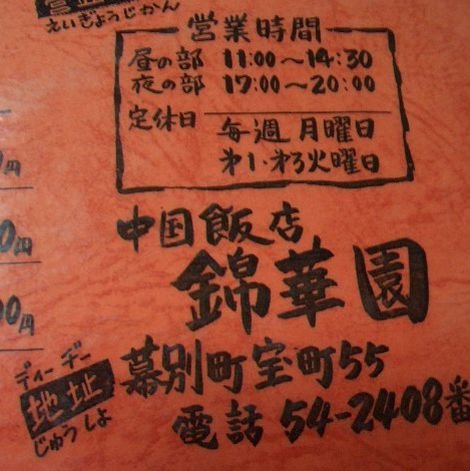 えいぎょうじかん
営業時間
昼の部 11:00〜14:30
夜の部 17:00〜20:00
定休日 毎週月曜日
第1・第3火曜日
0円
0円
00円
中国飯店
錦華園
ディーヂー
地址
じゅうしょ
幕別町宝町55
電話 54-2408番